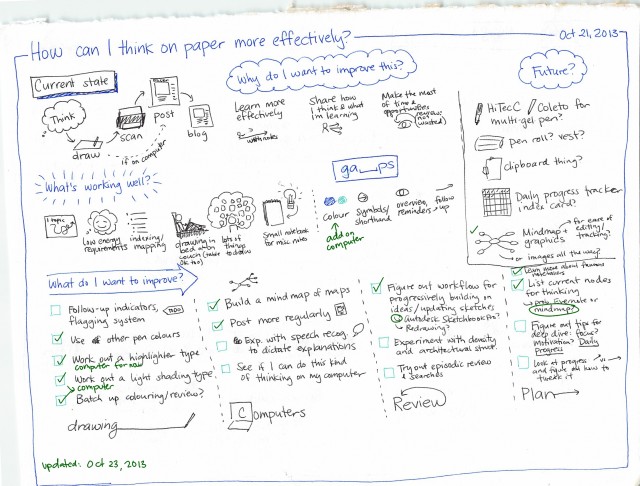 How can I think on paper more effectively?
Oct 21, 2013
Current state
Think
draw
scan
post
blog
if on computer
Why do I want to improve this?
Learn more
effectively
Share how
I think & what
I'm learning
Make the most
of time &
opportunities
Future?
HiTecC / Coleto for
multi-gel pen?
Pen roll? vest?
Clipboard thing?
Daily progress tracker
index card?
Mindmap +
graphics
for ease of
editing/
tracking?
or images all the way?
What's working well?
1 topic
Low energy
requirements
indexing/
mapping
drawing in
bed or on
couch (table
OK too)
lots of
things
to draw
Small notebook
for misc notes
ga ps
colour
add on
computer
Symbols/
shorthand
overview,
reminders
follow
up
What do I want to improve?
Follow-up indicators,
flagging system
TODO
Use other pen colours
Work out a highlighter type
computer for now
Work out a light shading type
computer
Batch up colouring/review?
drawing
Build a mind map of maps
Post more regularly
Exp. with speech recog.
to dictate explanations
See if I can do this kind
of thinking on my computer
Computers
Figure out workflow for
progressively building on
ideas/updating sketches
Autodesk SketchbookPro?
Redrawing?
Experiment with density
and architectural struct.
Try out episodic review
& searches
Review
Learn more about
List current nodes
for thinking
Evernote or
mindmap?
Figure out tips for
deep dive: focus?
motivation? Daily
progress
Look at progress
and figure out how to
tweak it
Plan
updated: Oct 23, 2013